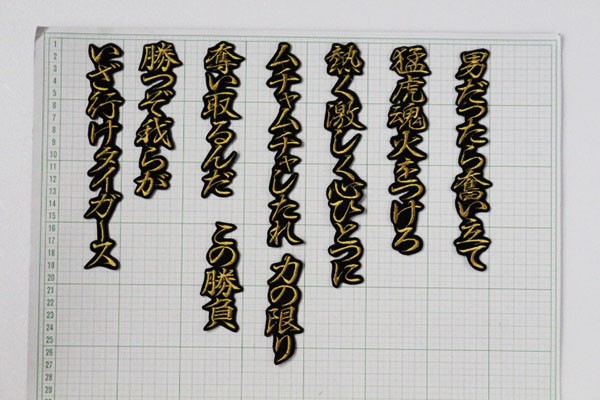 男だったら奮い立て
猛虎魂火をつけろ
熱く激しく心ひとつに
ムチャムチャしたれ 力の限り
奪い取るんだ この勝負
勝つぞ我らが
いざ行けタイガース
1
2
3
4
5
6
7
8
9
10
11
12
13
14
15
16
17
18
19
20
21
22
23
24
25
26
27
28
29